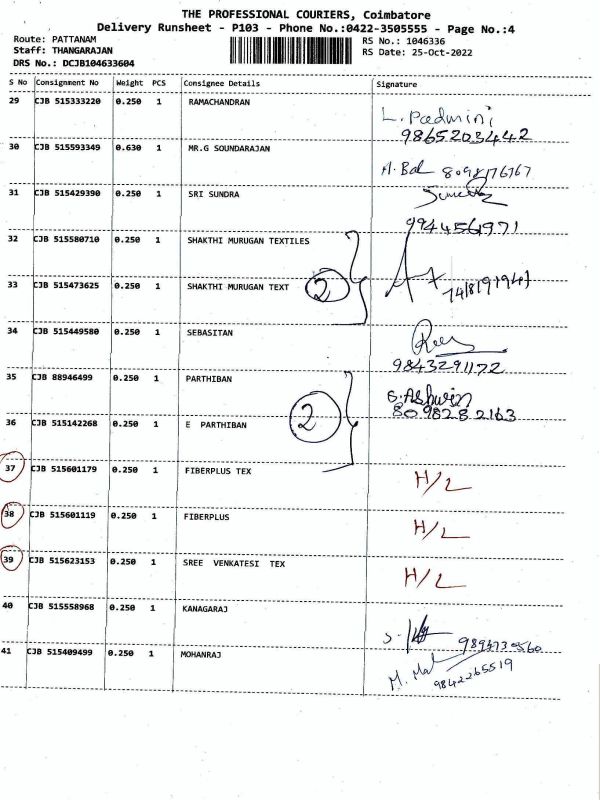 THE PROFESSIONAL COURIERS, Coimbatore
Delivery Runsheet - P103 - Phone No.:0422-3505555 - Page No.:4
Route: PATTANAM RS No.: 1046336
Staff: THANGARAJAN RS Date: 25-Oct-2022
DRS No.: DCJB104633604
S No Consignment No Weight PCS Consignee Details Signature
29 CJB 515333220 0.250 1 RAMACHANDRAN L. Padmini
9865203442
30 CJB 515593349 0.630 1 MR.G SOUNDARAJAN
31 CJB 515429390 0.250 1 SRI SUNDRA
9944564971
32 CJB 515580710 0.250 1 SHAKTHI MURUGAN TEXTILES
33 CJB 515473625 0.250 1 SHAKTHI MURUGAN TEXT 2
34 CJB 515449580 0.250 1 SEBASITAN
9843291172
35 CJB 88946499 0.250 1 PARTHIBAN S. Ashwin
8098282163
36 CJB 515142268 0.250 1 E PARTHIBAN 2
37 CJB 515601179 0.250 1 FIBERPLUS TEX H/L
38 CJB 515601119 0.250 1 FIBERPLUS H/L
39 CJB 515623153 0.250 1 SREE VENKATESI TEX H/L
40 CJB 515558968 0.250 1 KANAGARAJ
41 CJB 515409499 0.250 1 MOHANRAJ
9842265519